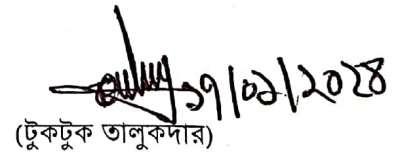 ১৭/০১/২০২৪
(টুকটুক তালুকদার)